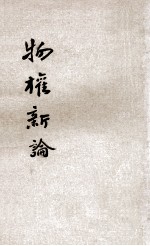 物權新論